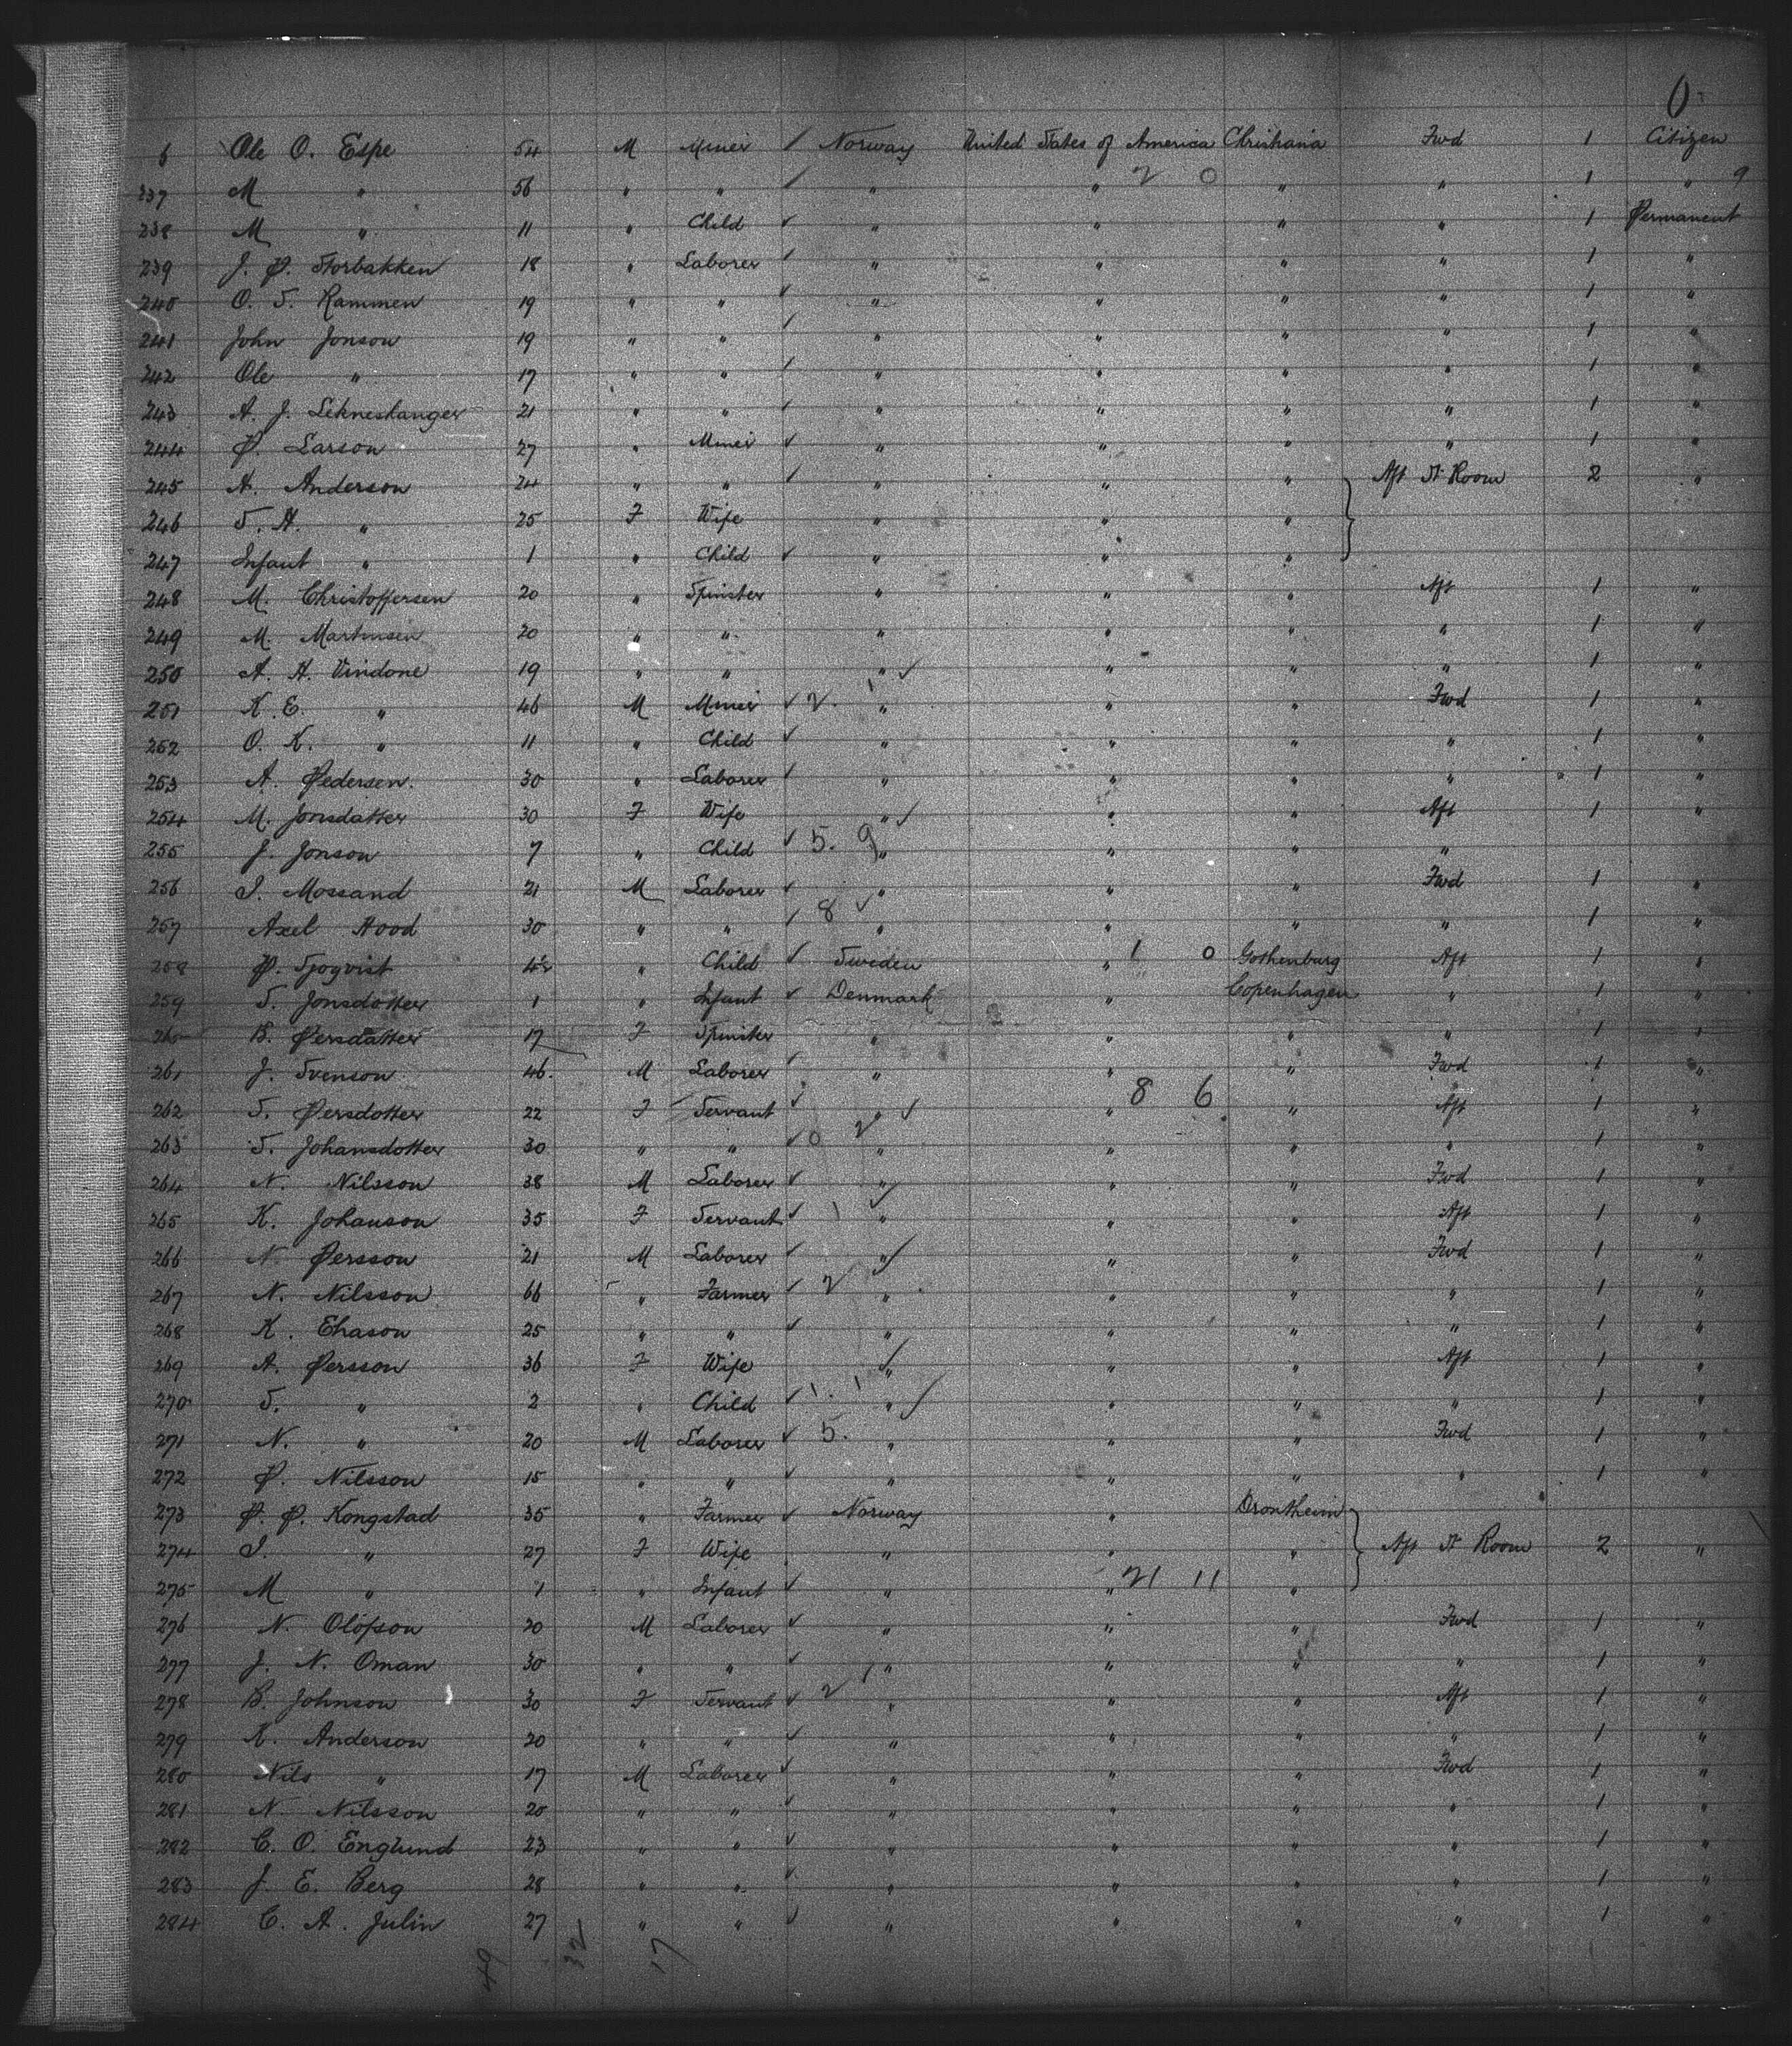 0
6 Ole O. Espe 54 M Miner ✓ Norway United States of America Christiania Fwd 1 Citizen
237 M " 56 " " ✓ " " 2 0 " " 1 " 9
238 M " 11 " Child ✓ " " " " 1 Permanent
239 J. P. Storbakken 18 " Laborer ✓ " " " " 1 "
240 O. S. Rammen 19 " " ✓ " " " " 1 "
241 John Jonson 19 " " ✓ " " " " 1 "
242 Ole " 17 " " ✓ " " " " 1 "
243 A. J. Lekneshanger 21 " " ✓ " " " " 1 "
244 P. Larson 27 " Miner ✓ " " " " 1 "
245 A. Anderson 24 " " ✓ " " " Aft St Room 2 "
246 S. A. " 25 F Wife " " "
247 Infant " 1 " Child ✓ " " "
248 M. Christoffersen 20 " Spinster " " " Aft 1 "
249 M. Martinsen 20 " " " " " " 1 "
250 A. A. Vindone 19 " " " ✓ " " " 1 "
251 K. E. " 46 M Miner ✓ 2. 1 " " " Fwd 1 "
252 O. K. " 11 " Child ✓ " " " " 1 "
253 A. Pedersen. 30 " Laborer ✓ " " " " 1 "
254 M. Jonsdatter 30 F Wife " ✓ " " Aft 1 "
255 J. Jonson 7 " Child ✓ 5. 9 " " " "
256 I. Mossand 21 M Laborer ✓ " " " Fwd 1 "
257 Axel Hood 30 " " ✓ 8 ✓ " " " " 1 "
258 P. Sjoqvist 4½ " Child ✓ Sweden " 1 0 Gothenburg Aft 1 "
259 S. Jonsdotter 1 " Infant ✓ Denmark " Copenhagen " 1 "
260 B. Persdatter 17 F Spinster " " " " 1 "
261 J. Svenson 46. M Laborer ✓ " " " Fwd 1 "
262 S. Persdotter 22 F Servant ✓ " ✓ " 8 6 " Aft 1 "
263 S. Johansdotter 30 " " ✓ 0 2 " " " " 1 "
264 N. Nilsson 38 M Laborer ✓ " " " Fwd 1 "
265 K. Johanson 35 F Servant ✓ 1 ✓ " " " Aft 1 "
266 N. Persson 21 M Laborer ✓ " ✓ " " Fwd 1 "
267 N. Nilsson 66 " Farmer ✓ 2 " " " " 1 "
268 K. Ehason 25 " " ✓ " " " " 1 "
269 A. Persson 36 F Wife " ✓ " " Aft 1 "
270 S. " 2 " Child ✓ 1. 1 " ✓ " " " 1 "
271 N. " 20 M Laborer ✓ 5. " " " Fwd 1 "
272 P. Nilsson 15 " " ✓ " " " " 1 "
273 P. P. Kongstad 35 " Farmer ✓ Norway " Drontheim
274 I. " 27 F Wife " " " Aft St Room 2 "
275 M " 1 " Infant ✓ " " 21 11 "
276 N. Olofson 20 M Laborer ✓ " " " Fwd 1 "
277 J. N. Oman 30 " " ✓ " " " " 1 "
278 B. Johnson 30 F Servant ✓ 2 1 " " " Aft 1 "
279 K. Anderson 20 " " ✓ " " " " 1 "
280 Nils " 17 M Laborer ✓ " " " Fwd 1 "
281 N. Nilsson 20 " " ✓ " " " " 1 "
282 C. O. Englund 23 " " ✓ " " " " 1 "
283 J. E. Berg 28 " " ✓ " " " " 1 "
284 C. A. Julin 27 " " ✓ " " " " 1 "
49 32 17